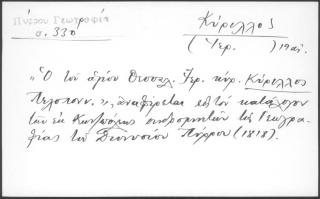 Πύρρου Γεωγραφία
σ. 330
Κύριλλος
(Ἱερ. ) 19 αἰ.
"Ὁ τοῦ ἁγίου Θεσσαλ. Ἱερ. κύρ. Κύριλλος
Πελοπον.", ἀναφέρεται εἰς τὸν κατάλογον
τῶν ἐκ Κων/πόλεως συνδρομητῶν τῆς Γεωγρα-
φίας τοῦ Διονυσίου Πύρρου (1818).